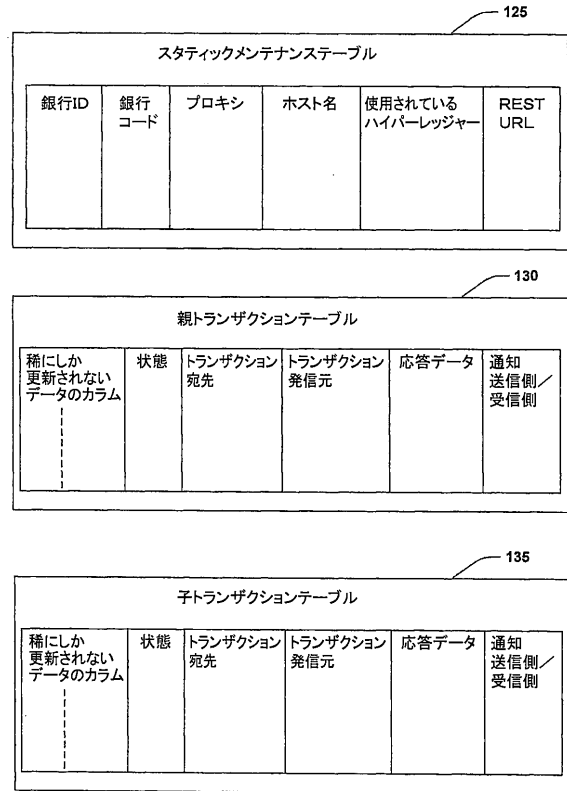 125
スタティックメンテナンステーブル
銀行ID
銀行
コード
プロキシ
ホスト名
使用されている
ハイパーレッジャー
REST
URL
130
親トランザクションテーブル
稀にしか
更新されない
データのカラム
状態
トランザクション
宛先
トランザクション
発信元
応答データ
通知
送信側／
受信側
135
子トランザクションテーブル
稀にしか
更新されない
データのカラム
状態
トランザクション
宛先
トランザクション
発信元
応答データ
通知
送信側／
受信側